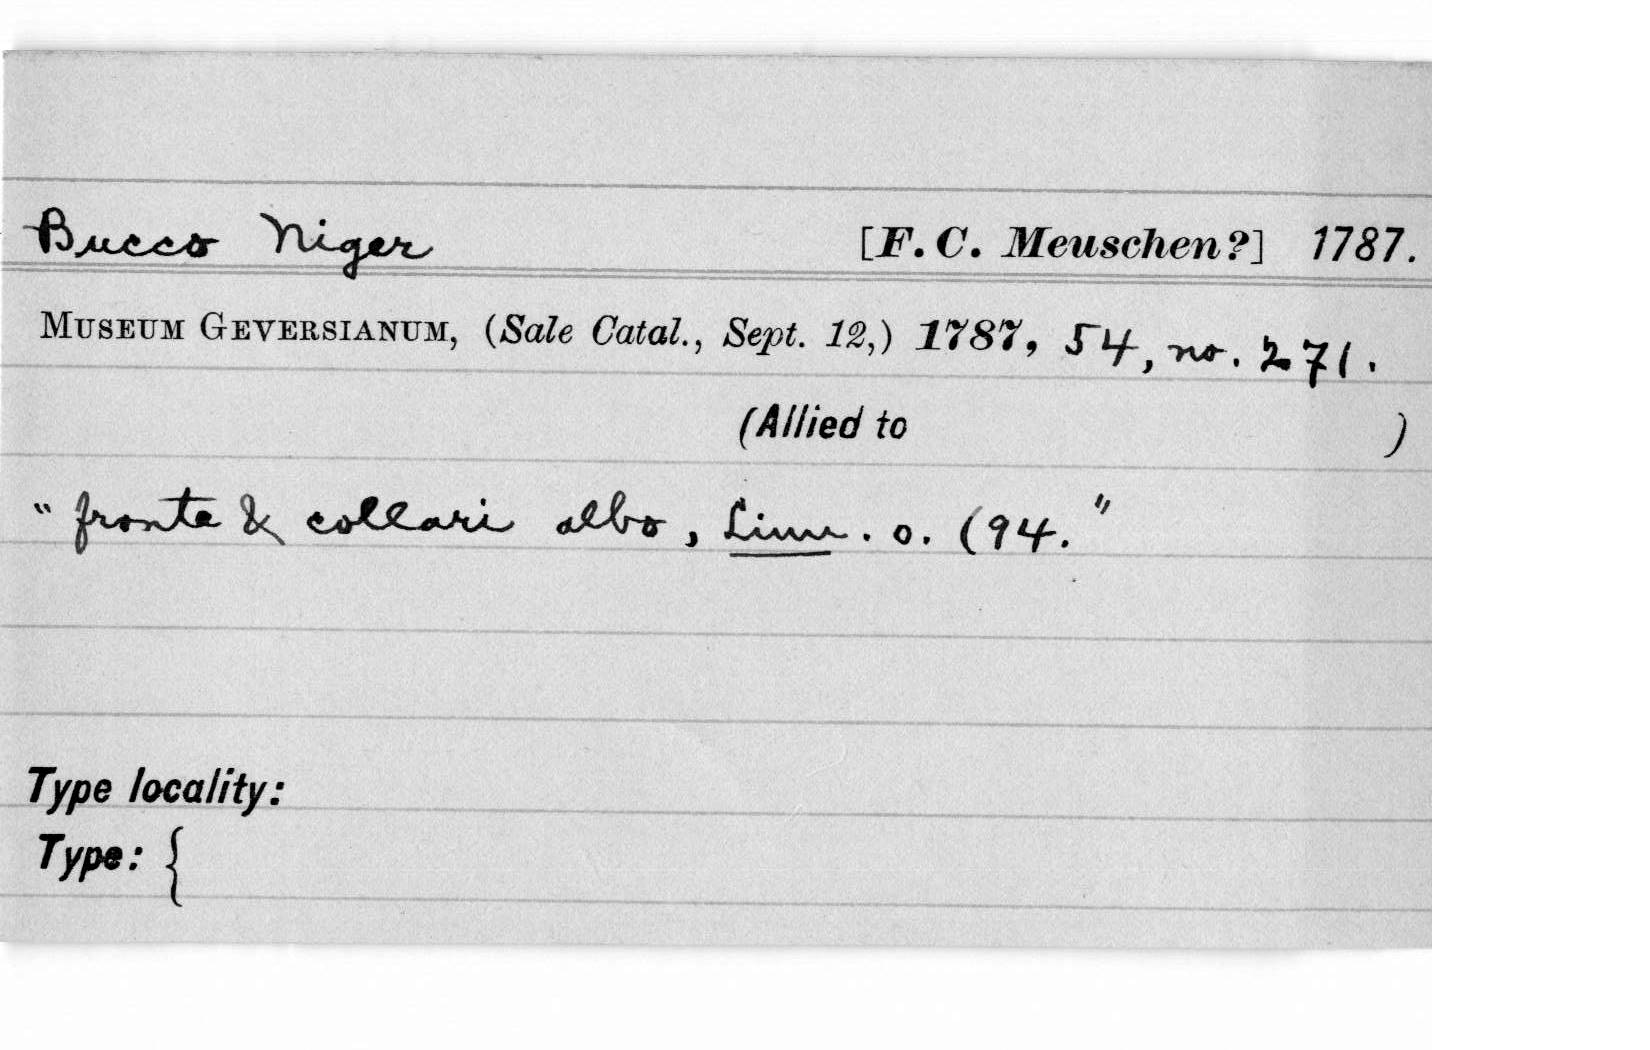 Bucco Niger [F. C. Meuschen?] 1787.
MUSEUM GEVERSIANUM, (Sale Catal., Sept. 12,) 1787, 54, no. 271.
(Allied to )
"fronte & collari albo, Linn. o. (94."
Type locality:
Type: {